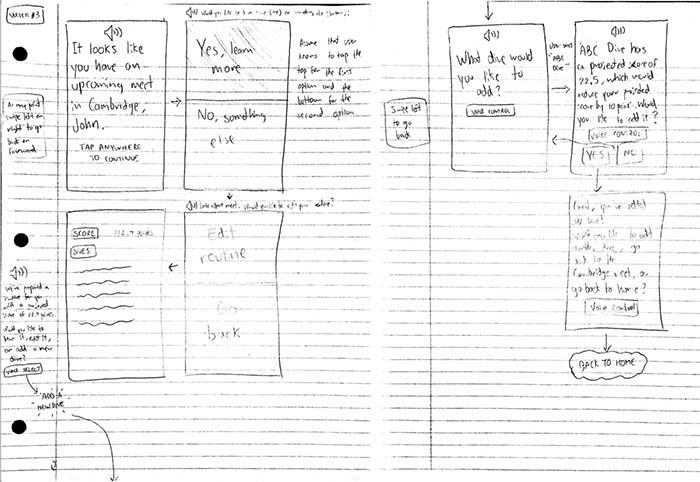 WEEK #3
It looks like
you have an
upcoming meet
in Cambridge,
John.
TAP ANYWHERE
TO CONTINUE
At any point
swipe left or
right to go
back or
forward
Yes, learn
more
No, something
else
Assume that user
knows to tap the
top for the first
option and the
bottom for the
second option
Edit
routine
Go
back
SCORE
DIVES
We've prepared a
routine for you
with a projected
score of
Would you like to
hear it, edit it,
or add a new
dive?
VOICE SELECT
ADD A
NEW DIVE
Swipe left
to go
back
What dive would
you like to
add?
VOICE CONTROL
User says
"ABC
DIVE"
ABC Dive has
a projected score of
22.5, which would
reduce your projected
score by 10 points. Would
you like to add it?
VOICE CONTROL
YES
NO
Great, you've added
this dive!
Would you like to add
another dive, go
back to the
Cambridge meet, or
go back to home?
Voice Control
BACK TO HOME